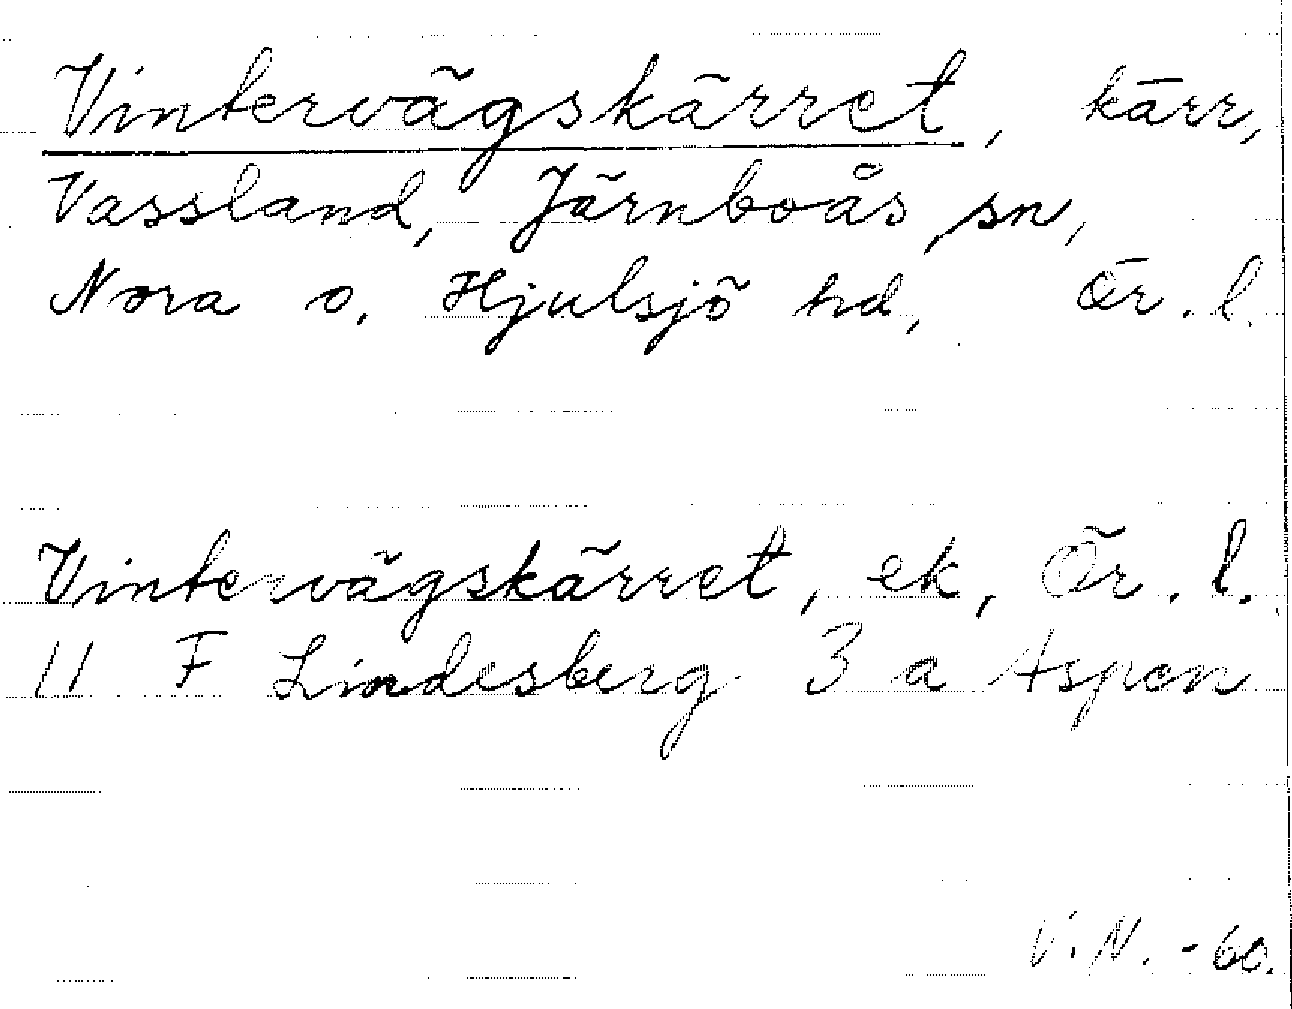 Vintervägskärret, kärr,
Vassland, Järnboås sn,
Nora o. Hjulsjö hd, Ör. l.
Vintervägskärret, ek, Ör. l.
11 F Lindesberg 3 a Aspen
V. N. - 60.